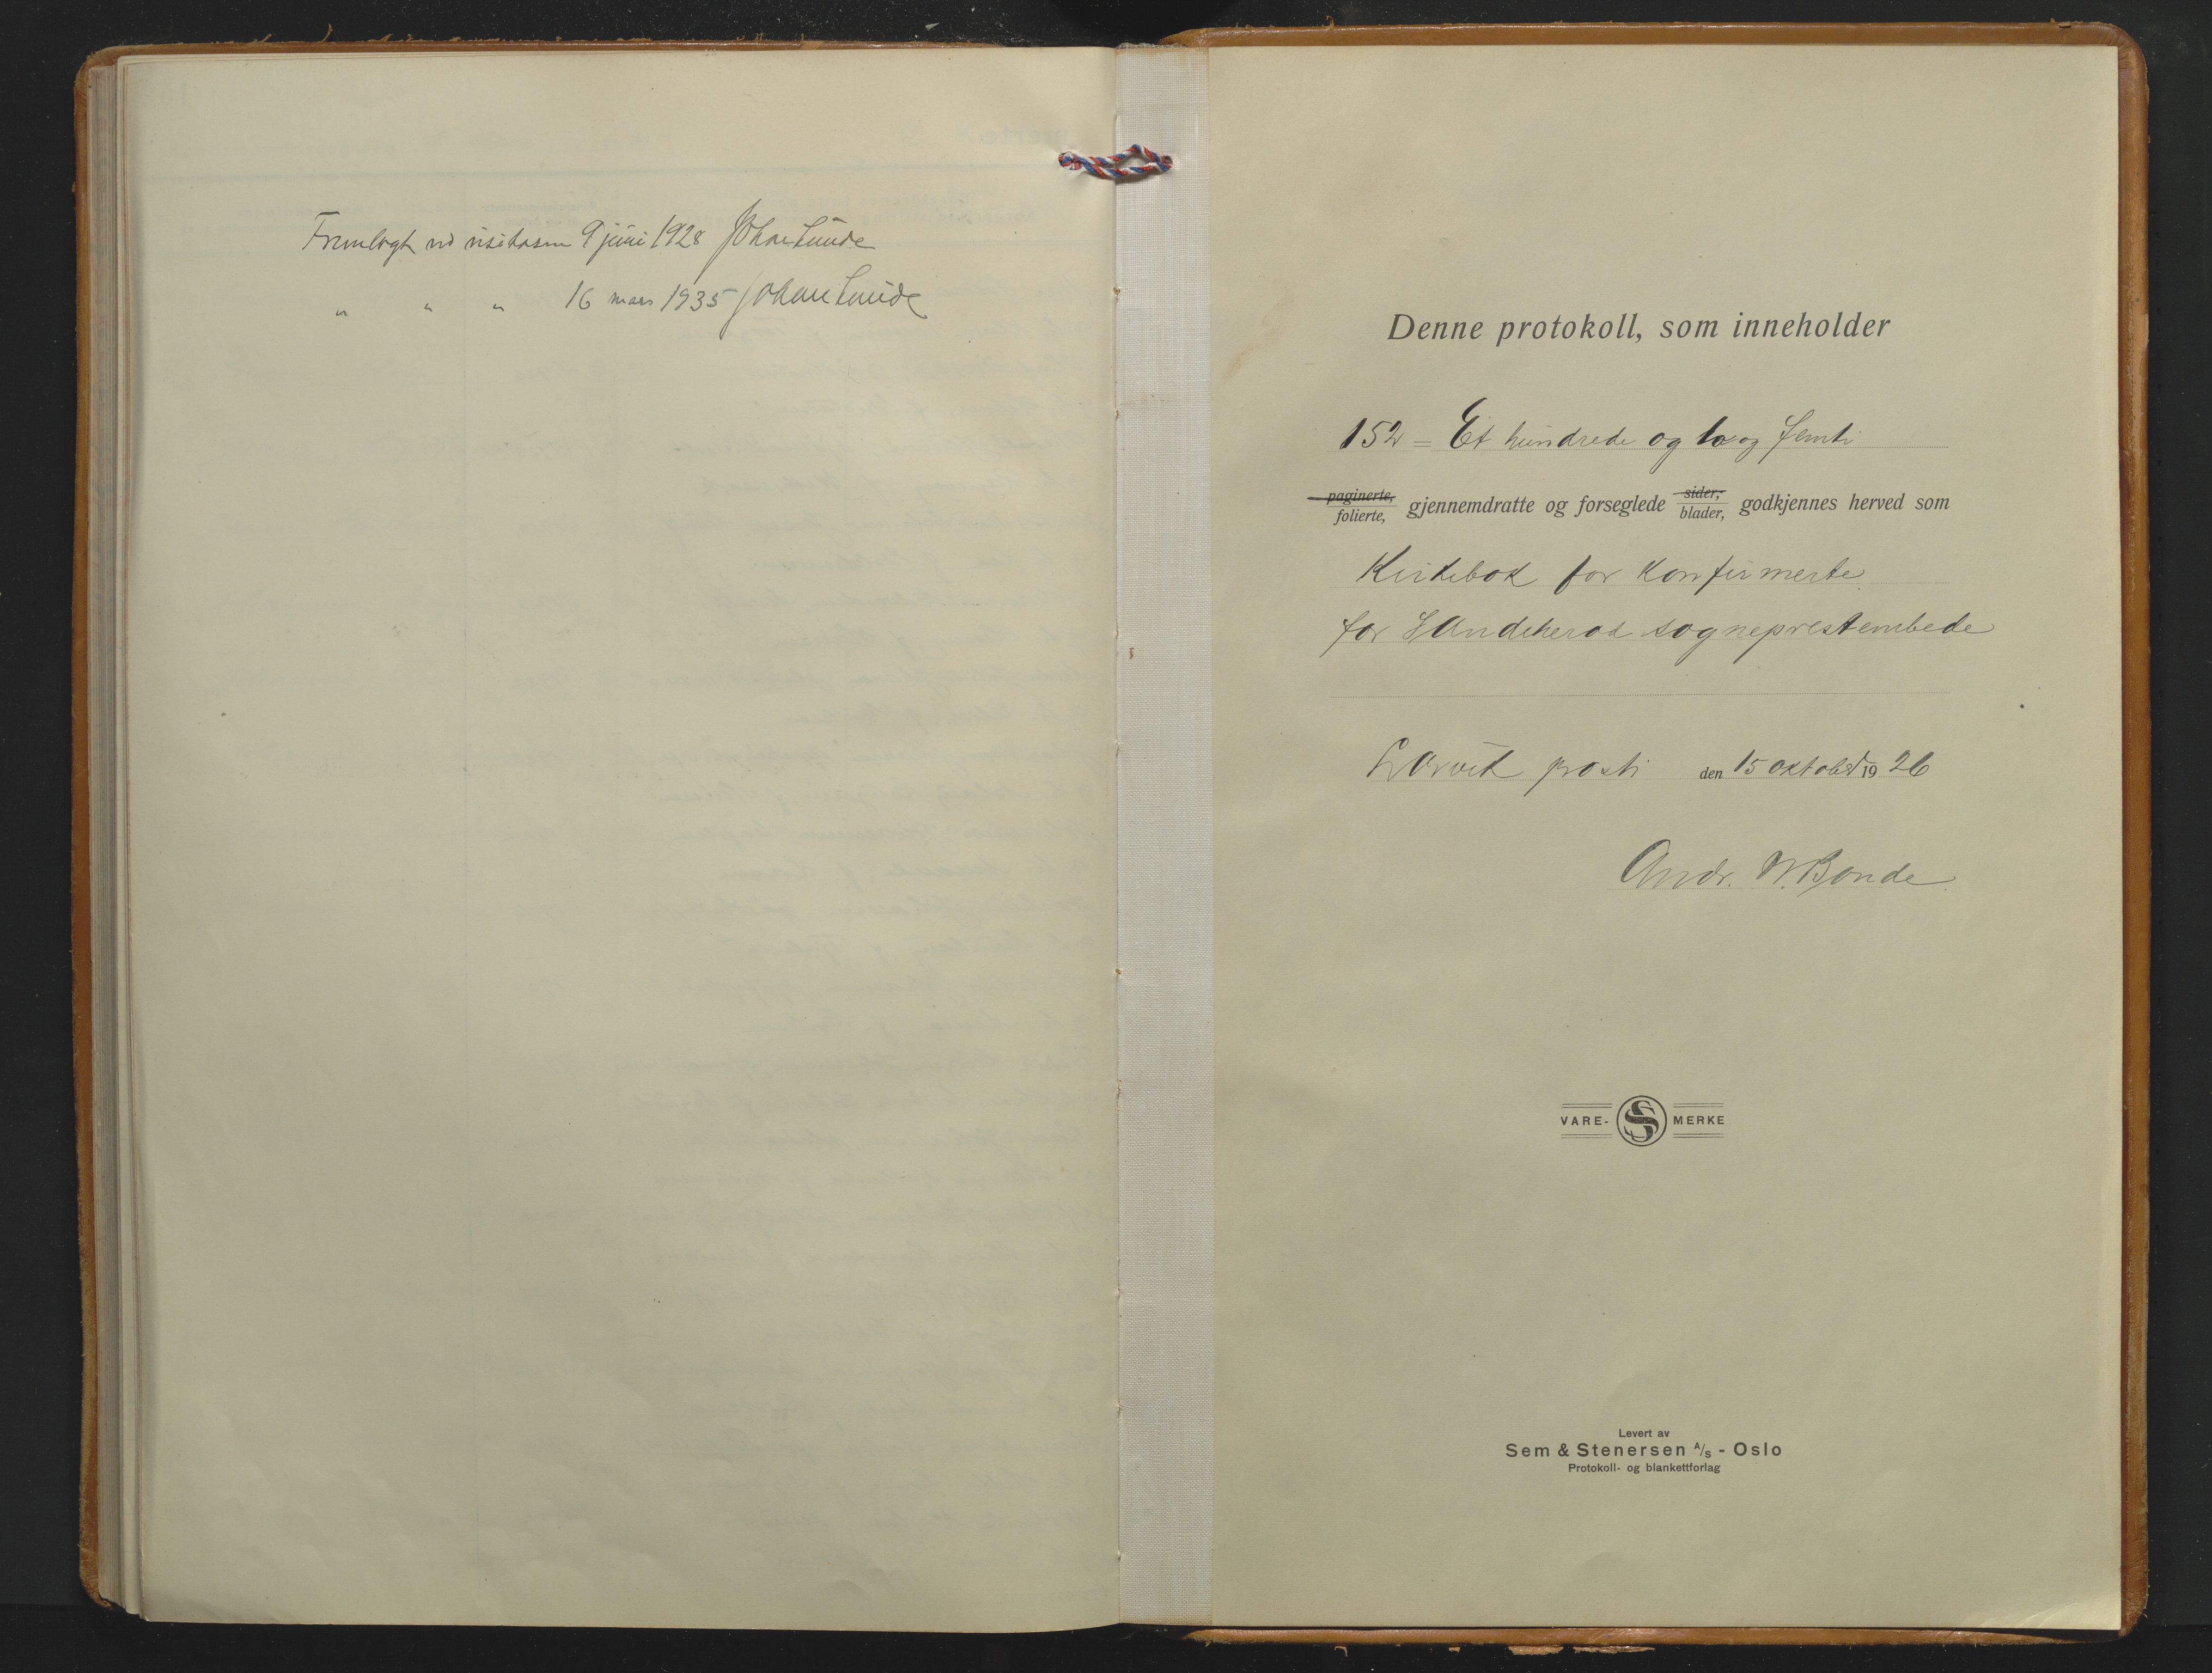 Fremlagt ved visitasen 9 juni 1928 Johan Lunde
" " " 16 mars 1935 Johan Lunde
Denne protokoll, som inneholder
152 = Et hundrede og to og femti
paginerte, folierte, gjennemdratte og forseglede sider, blader, godkjennes herved som
Kirkebok for konfirmerte
for Sandeherad sogneprestembede
Larvik prosti den 15 oktober 1926
Andr. N. Bonde
VARE- S MERKE
Levert av
Sem & Stenersen A/S - Oslo
Protokoll- og blankettforlag